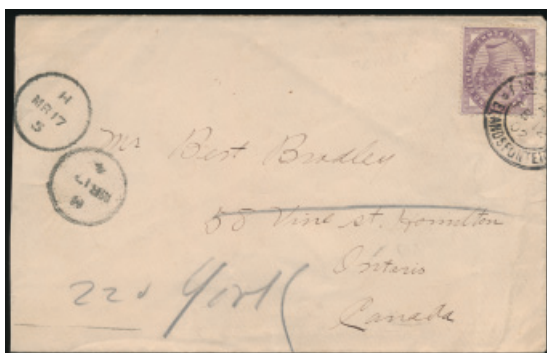 H
MR 17
S
MR 17
H
ELANDSFONTEIN
02
Mr Bert Bradley
58 Vine st. Hamilton
Ontario
Canada
220 York